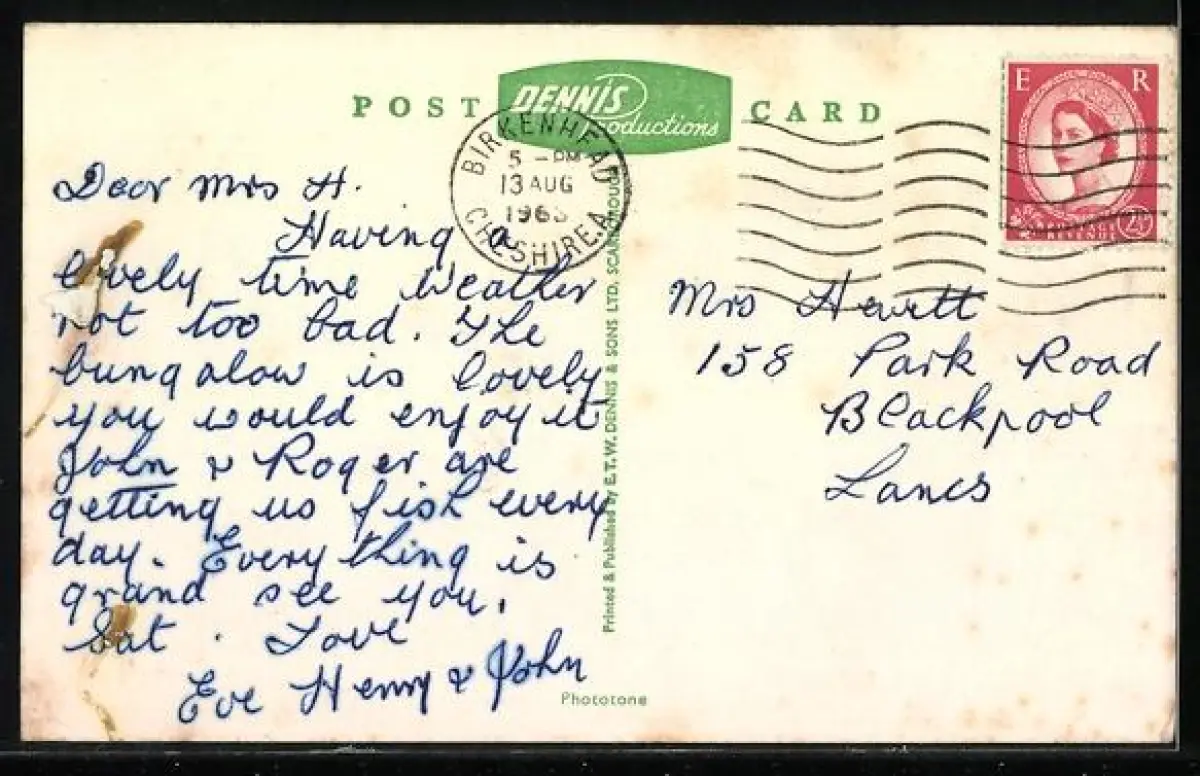 POST CARD
DENNIS
Productions
BIRKENHEAD
5 - PM
13 AUG
196
CHESHIRE.A
E R
POSTAGE
REVENUE
2½
Dear Mrs H.
Having a
lovely time Weather
not too bad. The
bungalow is lovely
you would enjoy it
John & Roger are
getting us fish every
day. Everything is
grand see you.
Sat. Love
Eve Henry & John
Printed & Published by E.T.W. DENNIS & SONS LTD, SCARBOROUGH
Mrs Hewitt
158 Park Road
Blackpool
Lancs
Phototone